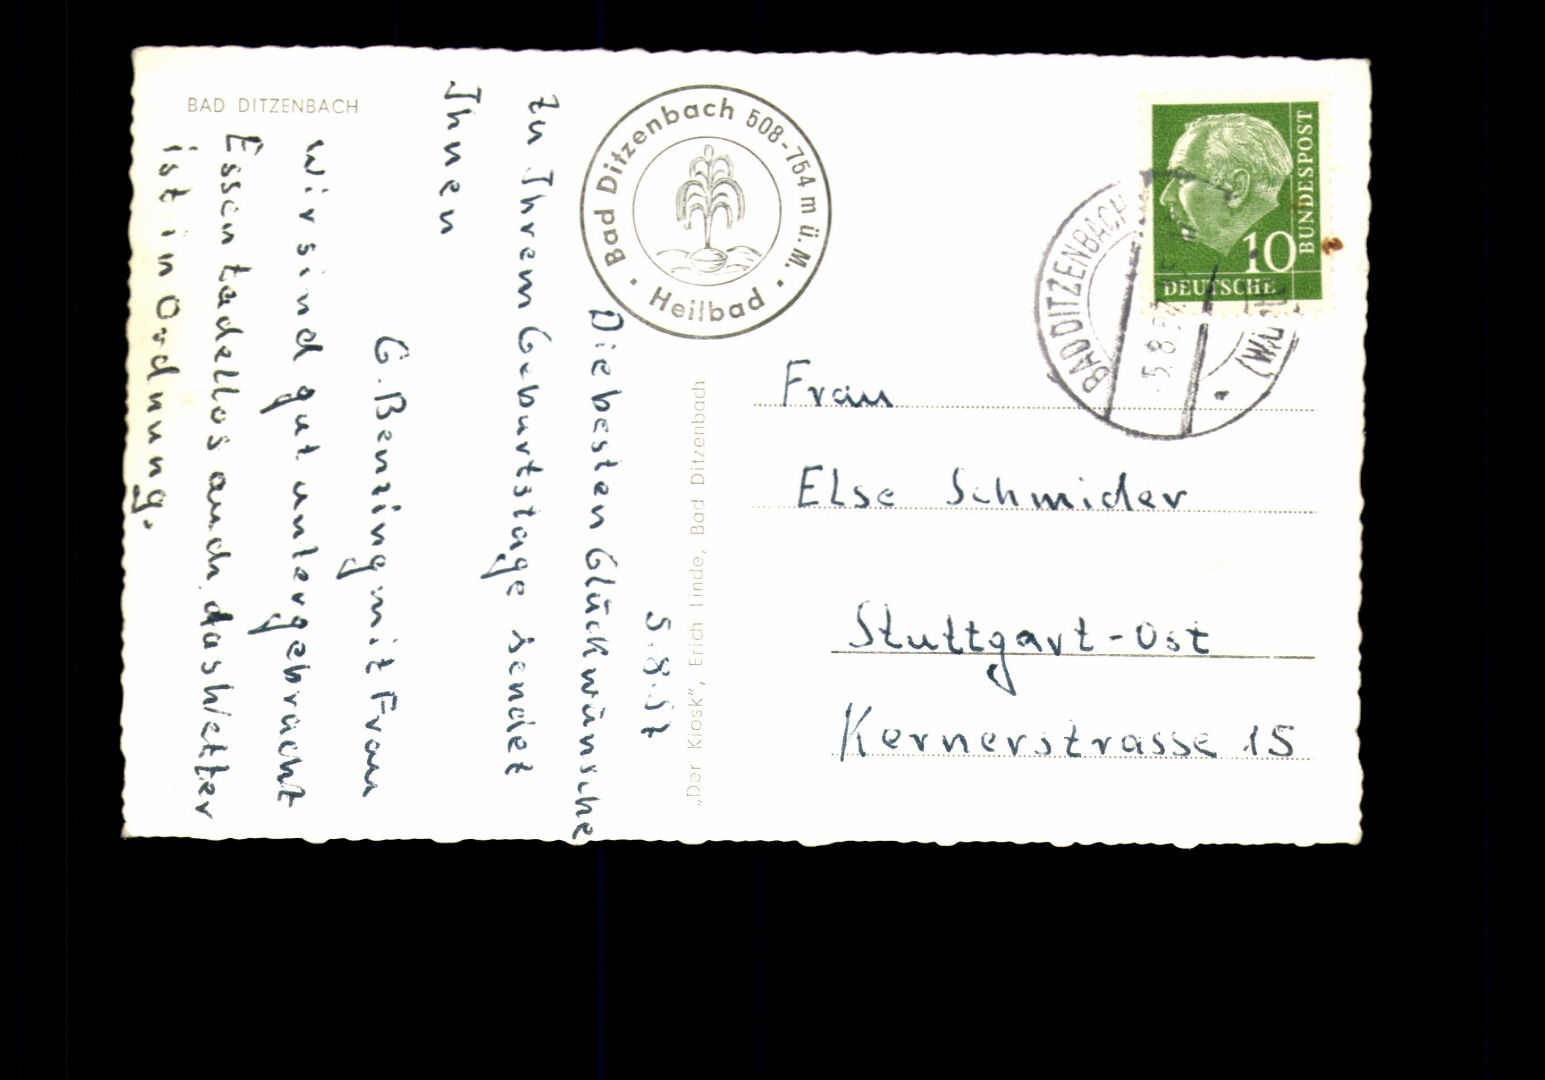 BAD DITZENBACH
Bad Ditzenbach 508-754 m ü.M.
Heilbad
5.8.57
Die besten Glückwünsche
zu Ihrem Geburtstage sendet
Ihnen
G. Benzing mit Frau
wir sind gut untergebracht
Essen tadellos auch das Wetter
ist in Ordnung.
„Der Kiosk", Erich Linde, Bad Ditzenbach
BUNDESPOST
10
DEUTSCHE
BAD DITZENBACH
-5.8.57
Frau
Else Schmider
Stuttgart-Ost
Kernerstrasse 15